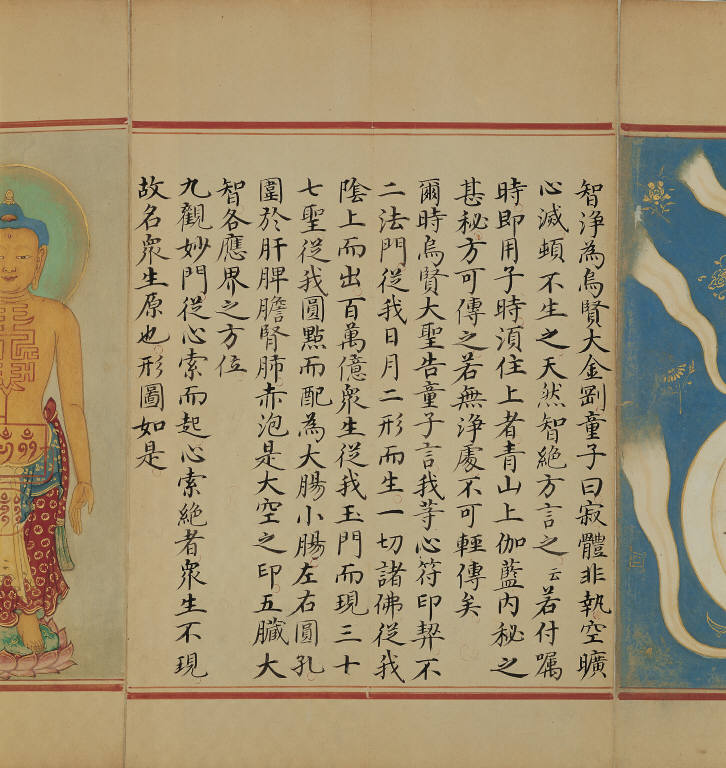 智淨為烏賢大金剛童子曰寂體非執空曠
心滅頓不生之天然智絕方言之云若付囑
時即用子時須住上者青山上伽藍內秘之
甚秘方可傳之若無淨處不可輕傳矣
爾時烏賢大聖告童子言我等心符印契不
二法門從我日月二形而生一切諸佛從我
陰上而出百萬億眾生從我玉門而現三十
七聖從我圓點而配為大腸小腸左右圓孔
圍於肝脾膽腎肺赤泡是大空之印五臟大
智各應界之方位
九觀妙門從心索而起心索絕者眾生不現
故名眾生原也形圖如是